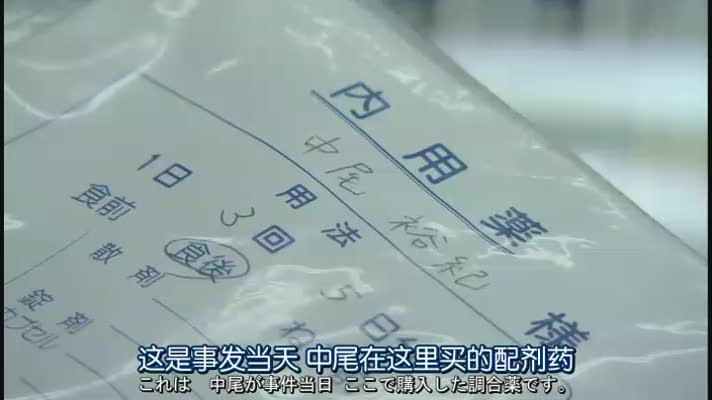 内用薬
中尾 裕紀 様
用法
1日 3 回 5 日分
食前 食後
散剤
錠剤
カプセル
这是事发当天 中尾在这里买的配剂药
これは 中尾が事件当日 ここで購入した調合薬です。